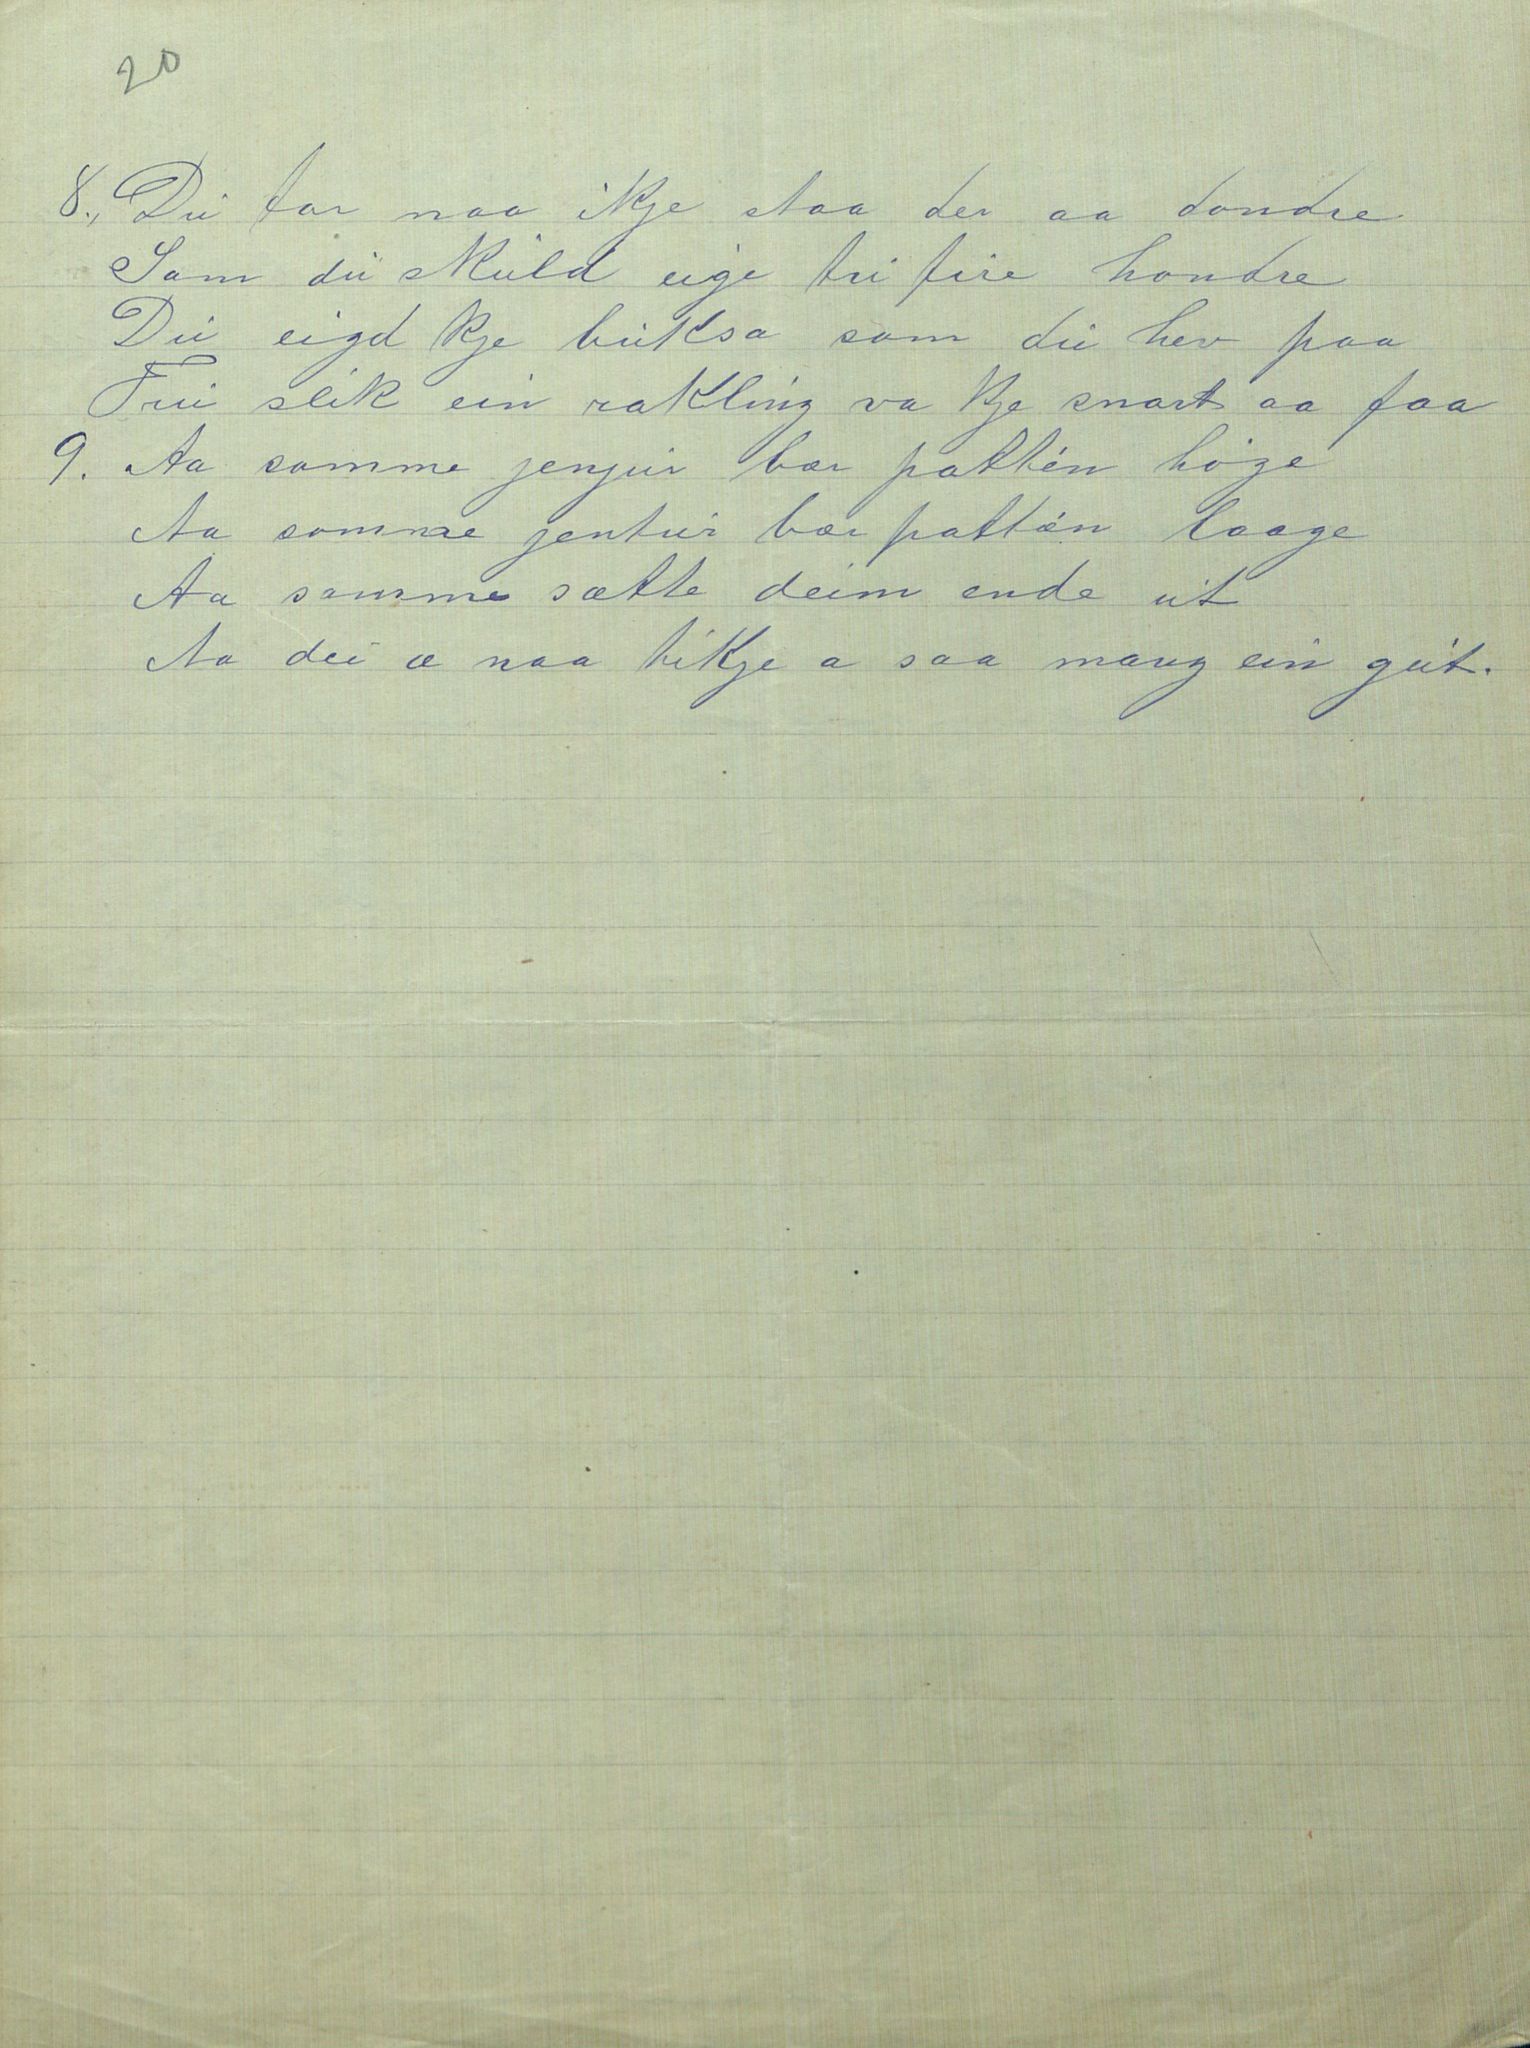 20
8., Du tar naa ikje staa der aa dondre
Som du skuld eige tri fire hondre
Du eigd kje buksa som du hev paa
Frui slik ein rakling va kje snart aa faa
9. Aa somme jenjur bær pattén höge
Aa somme jentur bær pattæn laage
Aa somme sætte deim ende ut
Aa dei æ naa tikje a saa mang ein gut.